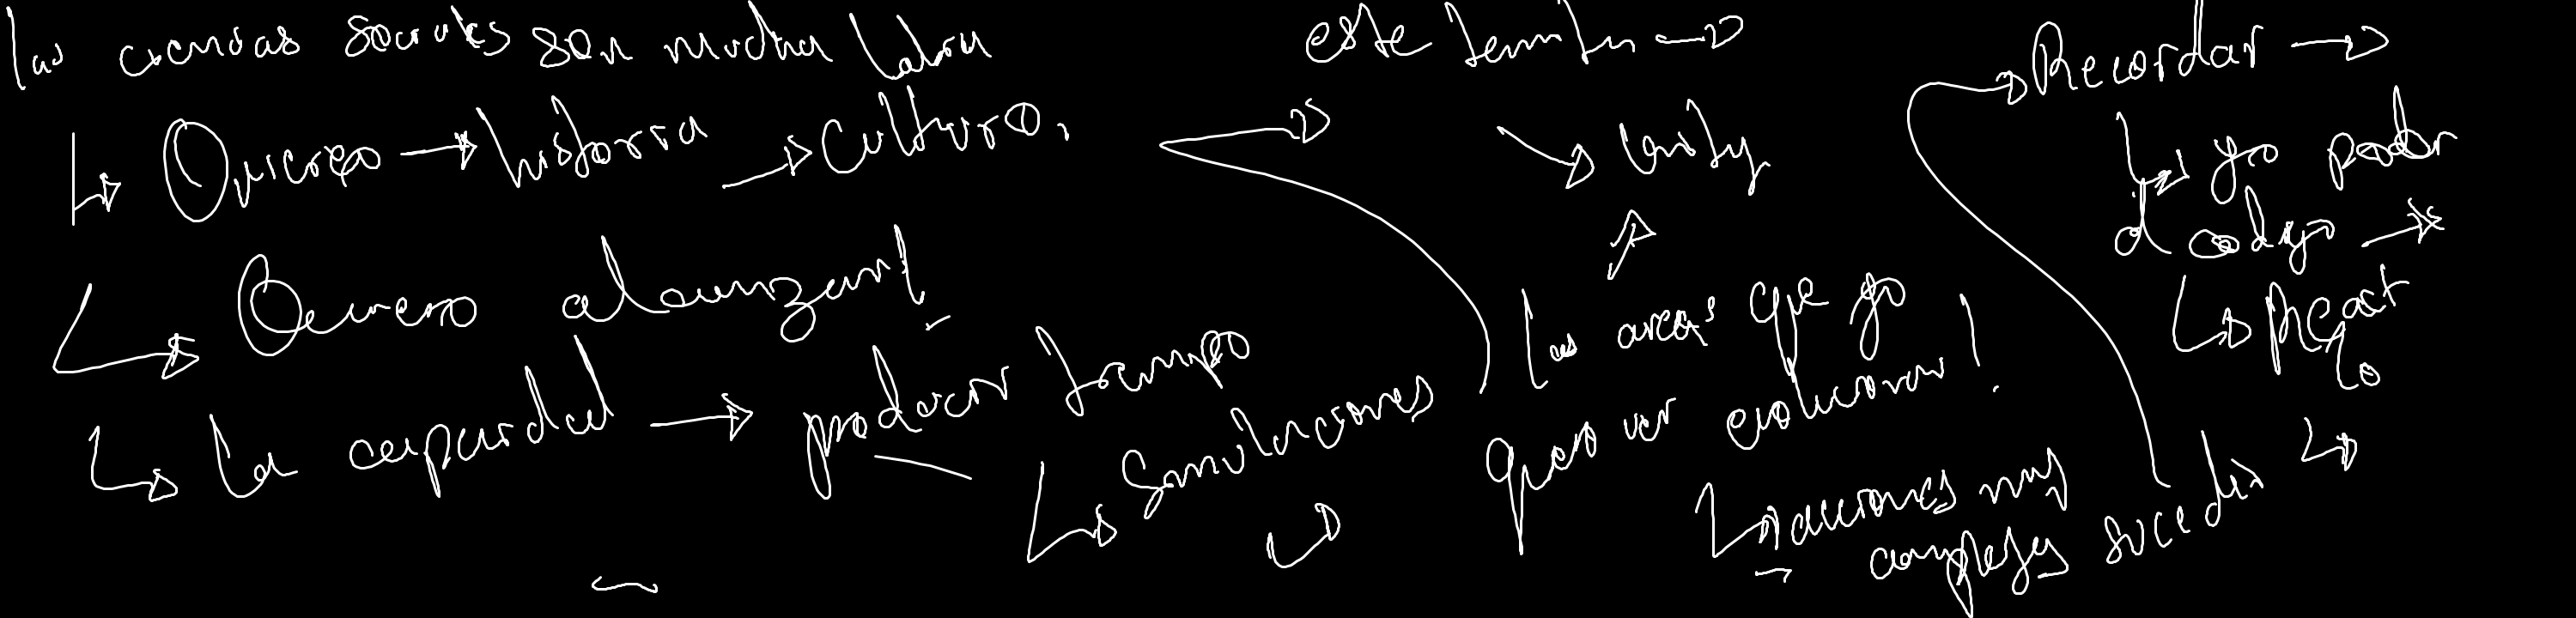 las ciencias sociales son mucha labor
Quiero → historia → Cultura.
Quiero alcanzar!
La capacidad → producir tiempo
Simulaciones
este →
Unity
las areas que yo
quiero ver evolucionar!
acciones muy
complejas
Recordar →
yo poder
d codigo →
React